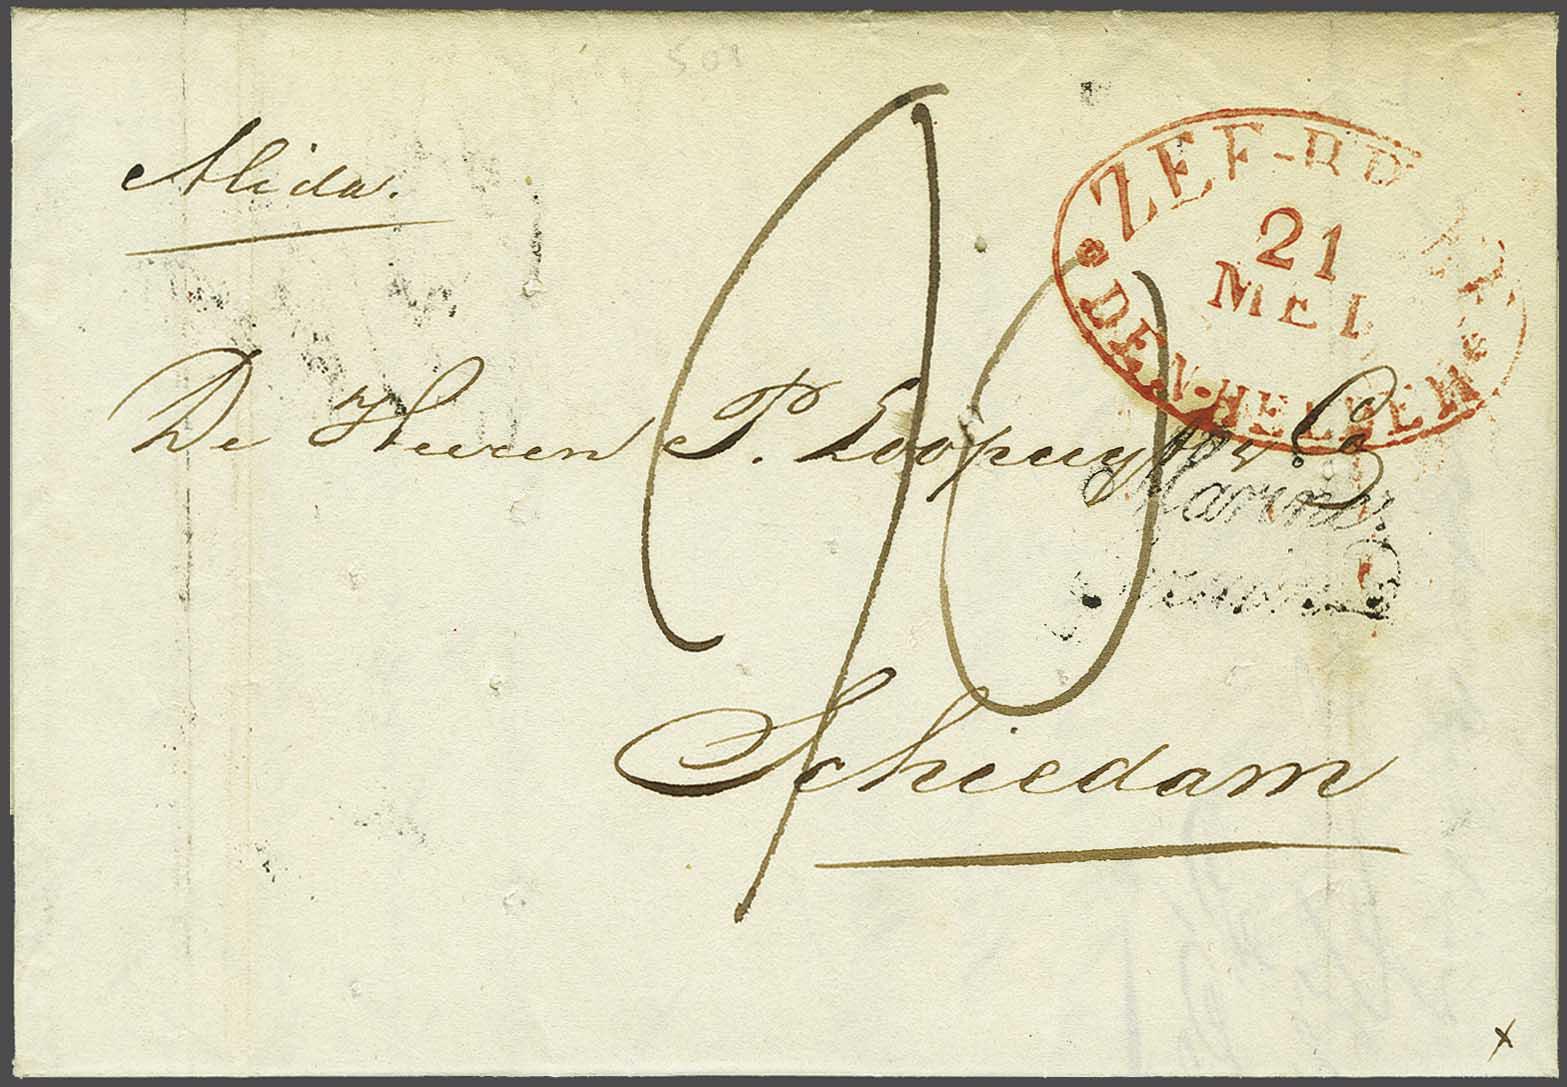 501
Alida.
ZEE-BRIEF
21
MEI
DEN-HELDER
90
De Heeren P. Loopuyt & Co
Schiedam
x